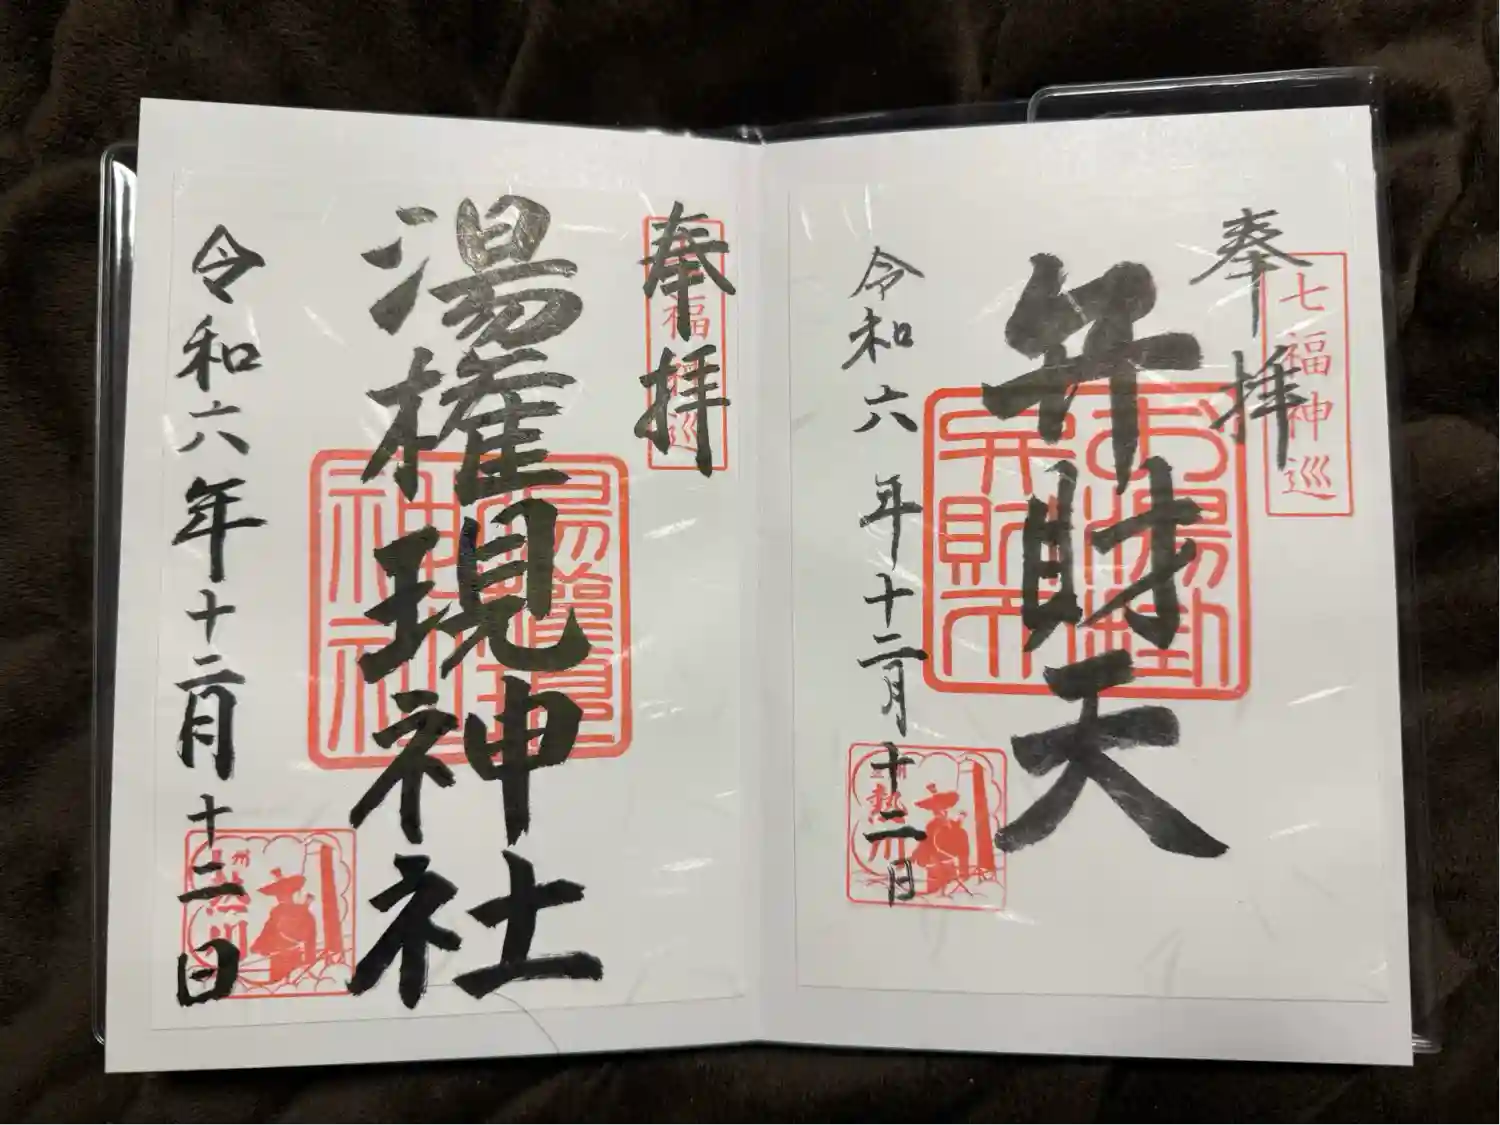 奉拝
七福神巡
弁財天
お湯掛
弁財天
令和六年十二月十二日
熱川
奉拝
七福神巡
湯権現神社
湯権現
神社
令和六年十二月十二日
豆州
熱川